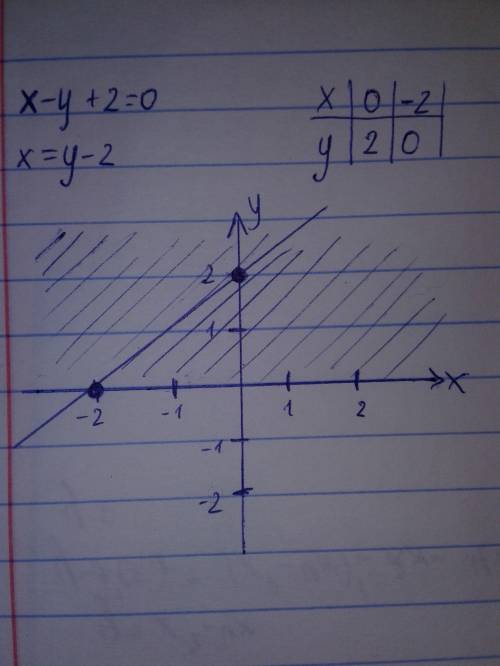 x-y+2=0
x=y-2
x 0 -2
y 2 0
y
2
1
x
-2 -1 1 2
-1
-2